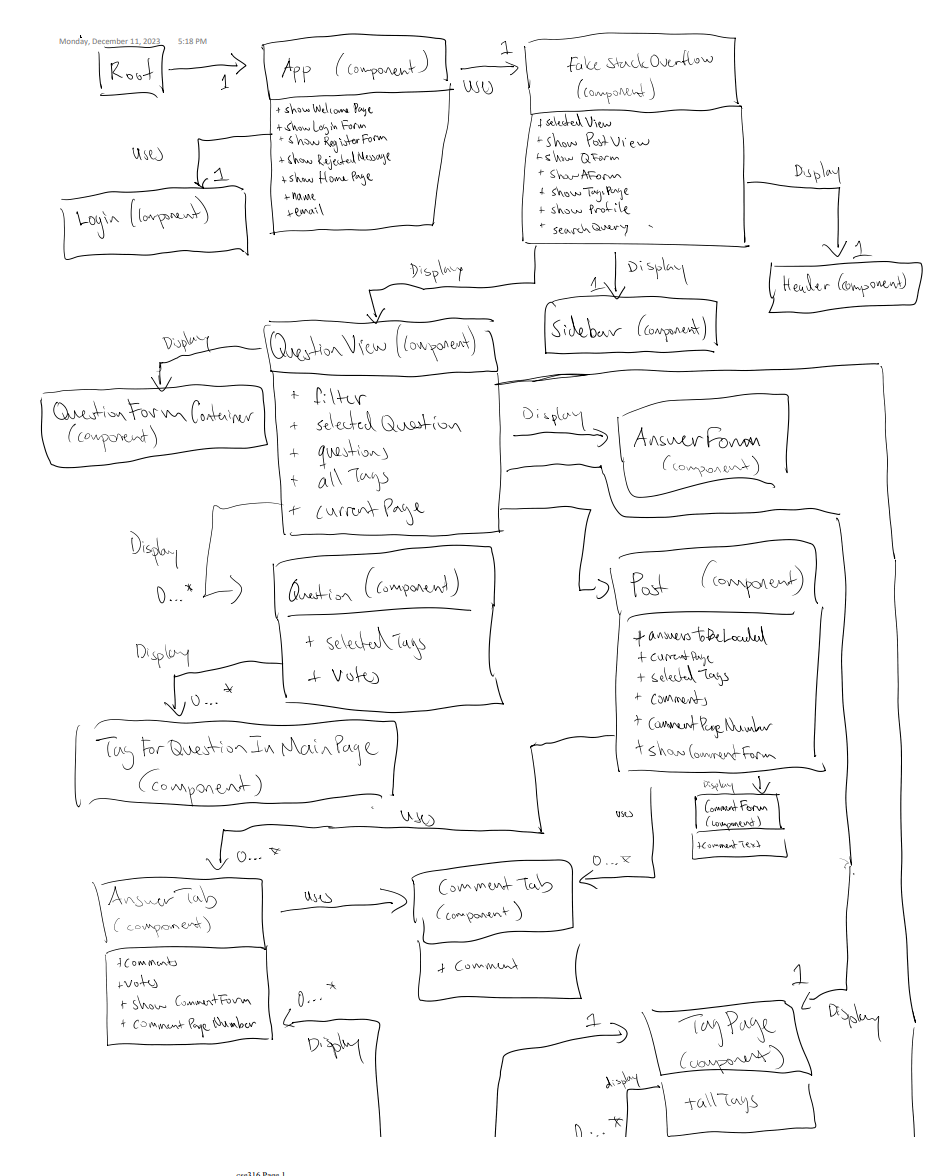 Monday, December 11, 2023 5:18 PM
Root
1
App (component)
+ show Welcome Page
+ show Login Form
+ show Register Form
+ show Rejected Message
+ show Home Page
+ name
+ email
uses
1
Fake Stack Overflow
(component)
+ selected View
+ show Post View
+ show QForm
+ show AForm
+ show Tags Page
+ show Profile
+ search Query
uses
1
Login (component)
Display
1
Header (component)
Display
1
Sidebar (component)
Display
Question View (component)
+ filter
+ selected Question
+ questions
+ all Tags
+ current Page
Display
Question Form Container
(component)
Display
Answer Form
(component)
Display
0...*
Question (component)
+ selected Tags
+ Votes
Post (component)
+ answersToBeLoaded
+ current Page
+ selected Tags
+ comments
+ Comment Page Number
+ show Comment Form
Display
0...*
Tag For Question In Main Page
(component)
Display
Comment Form
(component)
+ Comment Text
uses
0...*
uses
0...*
Answer Tab
(component)
+ comments
+ votes
+ show Comment Form
+ comment Page Number
uses
Comment Tab
(component)
+ Comment
0...*
Display
1
Display
1
Tag Page
(component)
+ all Tags
display
0...*
cse316 Page 1